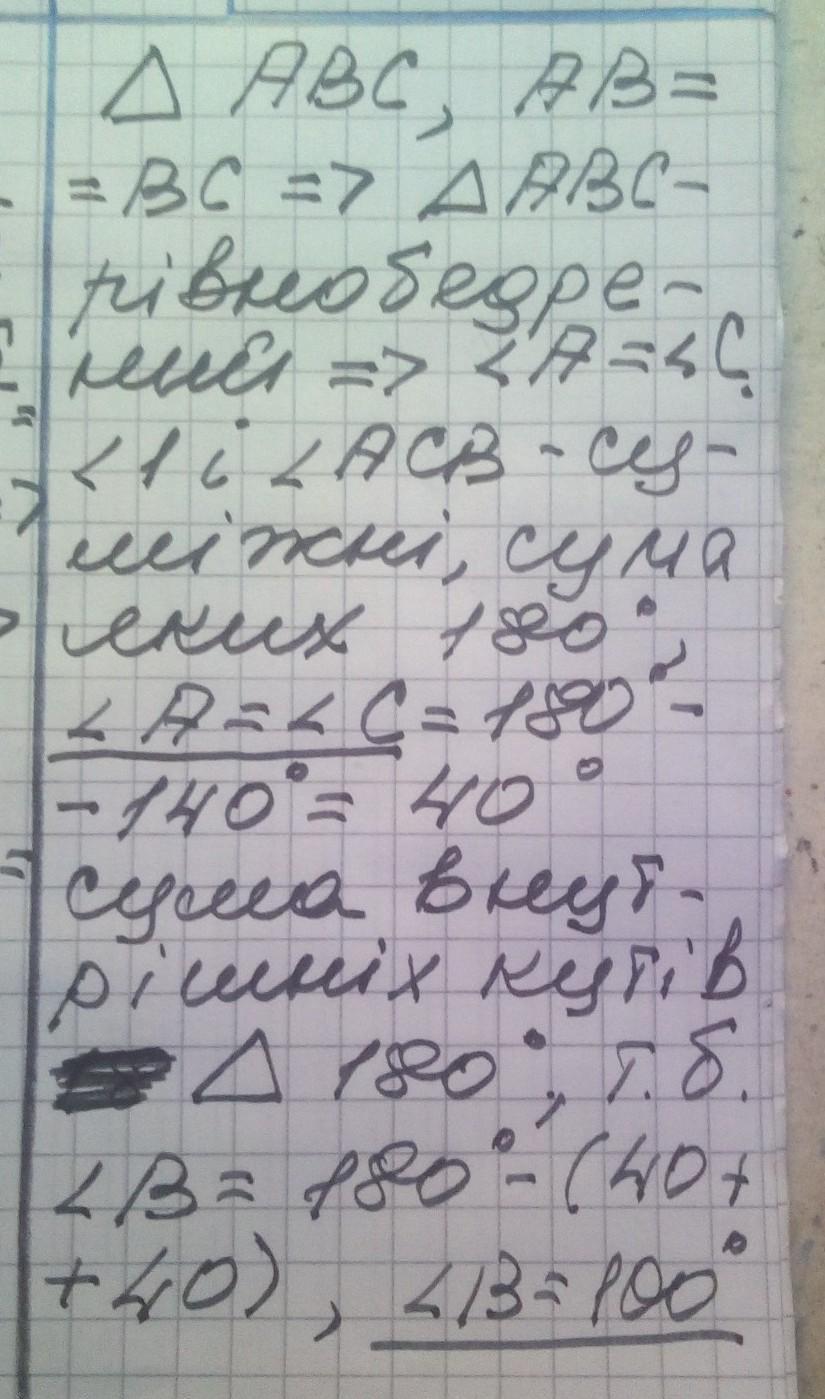 △ ABC, AB=
=BC => △ABC-
рівнобедре-
ний => ∠A=∠C.
∠1 і ∠ACB - су-
міжні, сума
яких 180°,
∠A=∠C=180°-
-140°= 40°
сума внут-
рішніх кутів
△ 180°, т.б.
∠B= 180°-(40+
+40), ∠B=100°